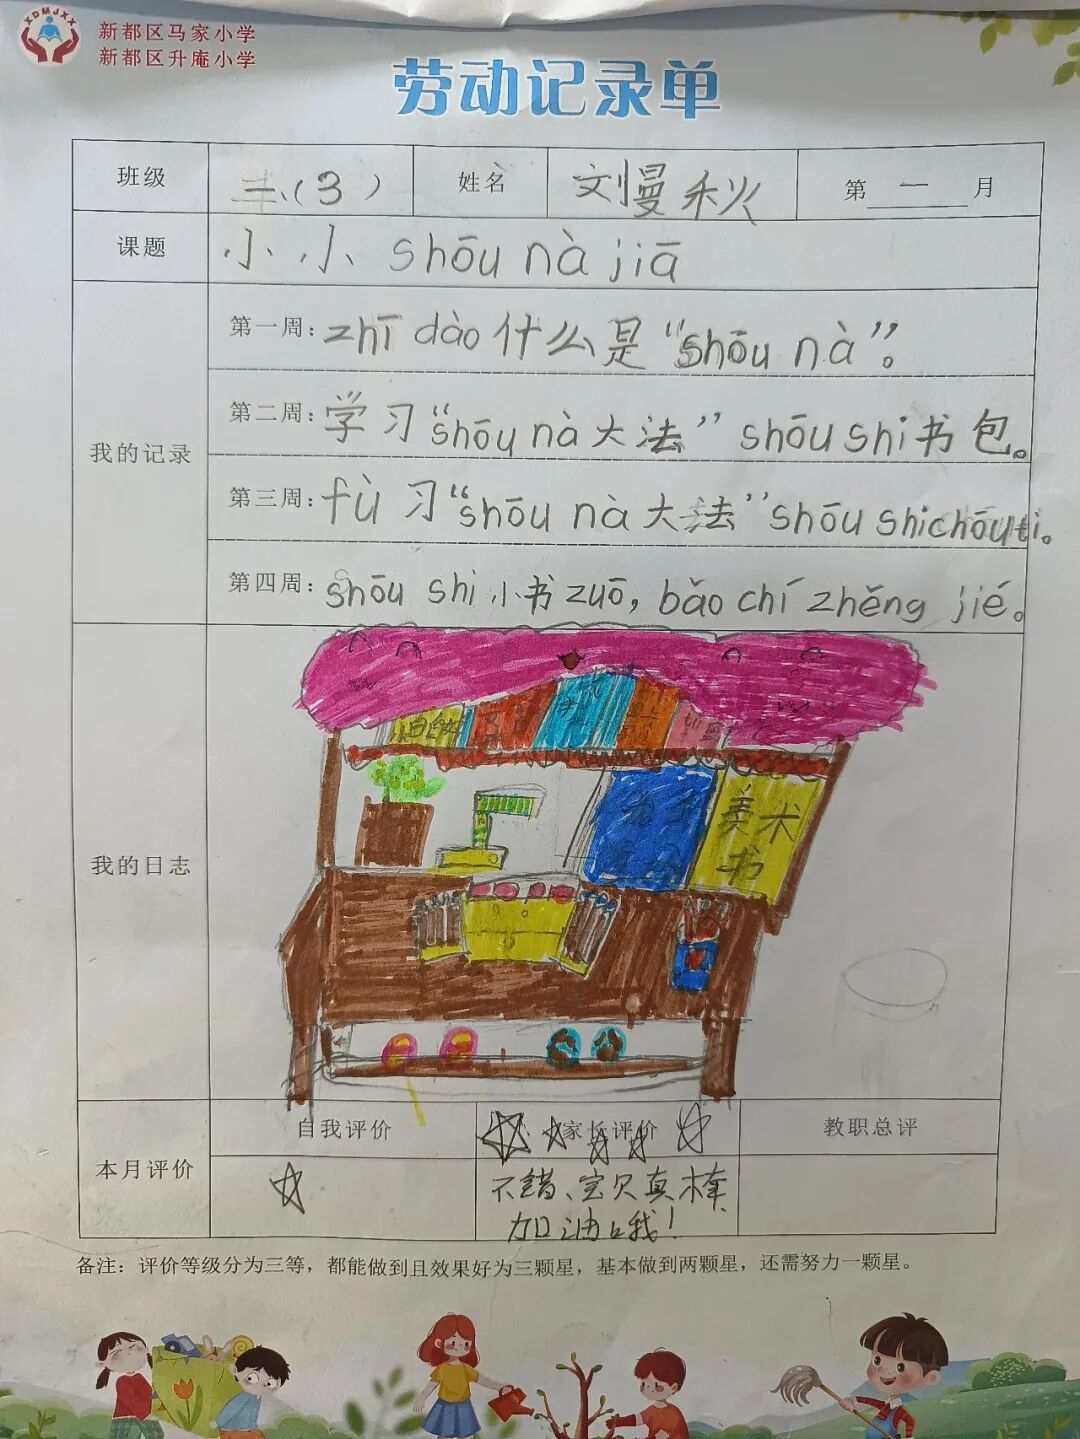 XDMJXX
新都区马家小学
新都区升庵小学
劳动记录单
班级 二(3) 姓名 刘曼秋 第一月
课题 小小 shōu nà jiā
我的记录
第一周: zhī dào 什么是“shōu nà”。
第二周: 学习“shōu nà 大法” shōu shi 书包。
第三周: fù 习“shōu nà 大法” shōu shi chōu ti。
第四周: shōu shi 小书 zuō, bǎo chí zhěng jié。
我的日志
美术
书
本月评价
自我评价 家长评价 教职总评
不错、宝贝真棒
加油哦!
备注: 评价等级分为三等，都能做到且效果好为三颗星，基本做到两颗星，还需努力一颗星。